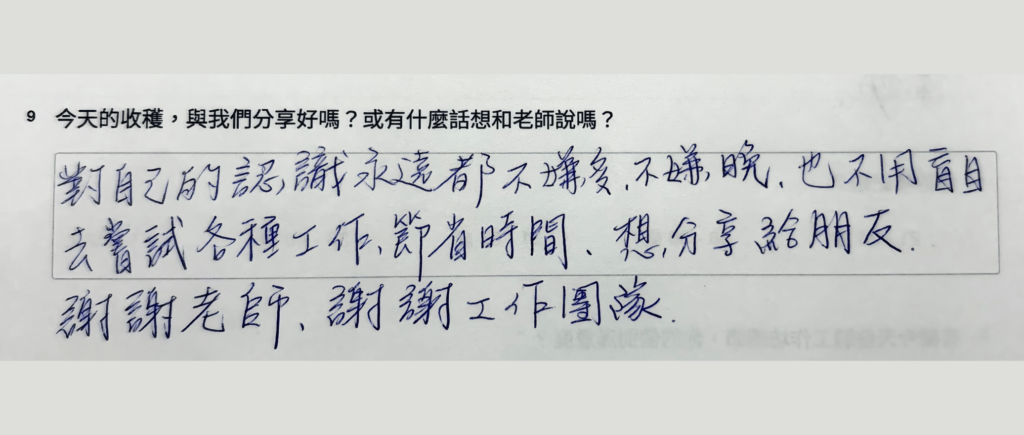 9 今天的收穫，與我們分享好嗎？或有什麼話想和老師說嗎？
對自己的認識永遠都不嫌多、不嫌晚、也不用盲目
去嘗試各種工作、節省時間、想分享給朋友.
謝謝老師、謝謝工作團隊.